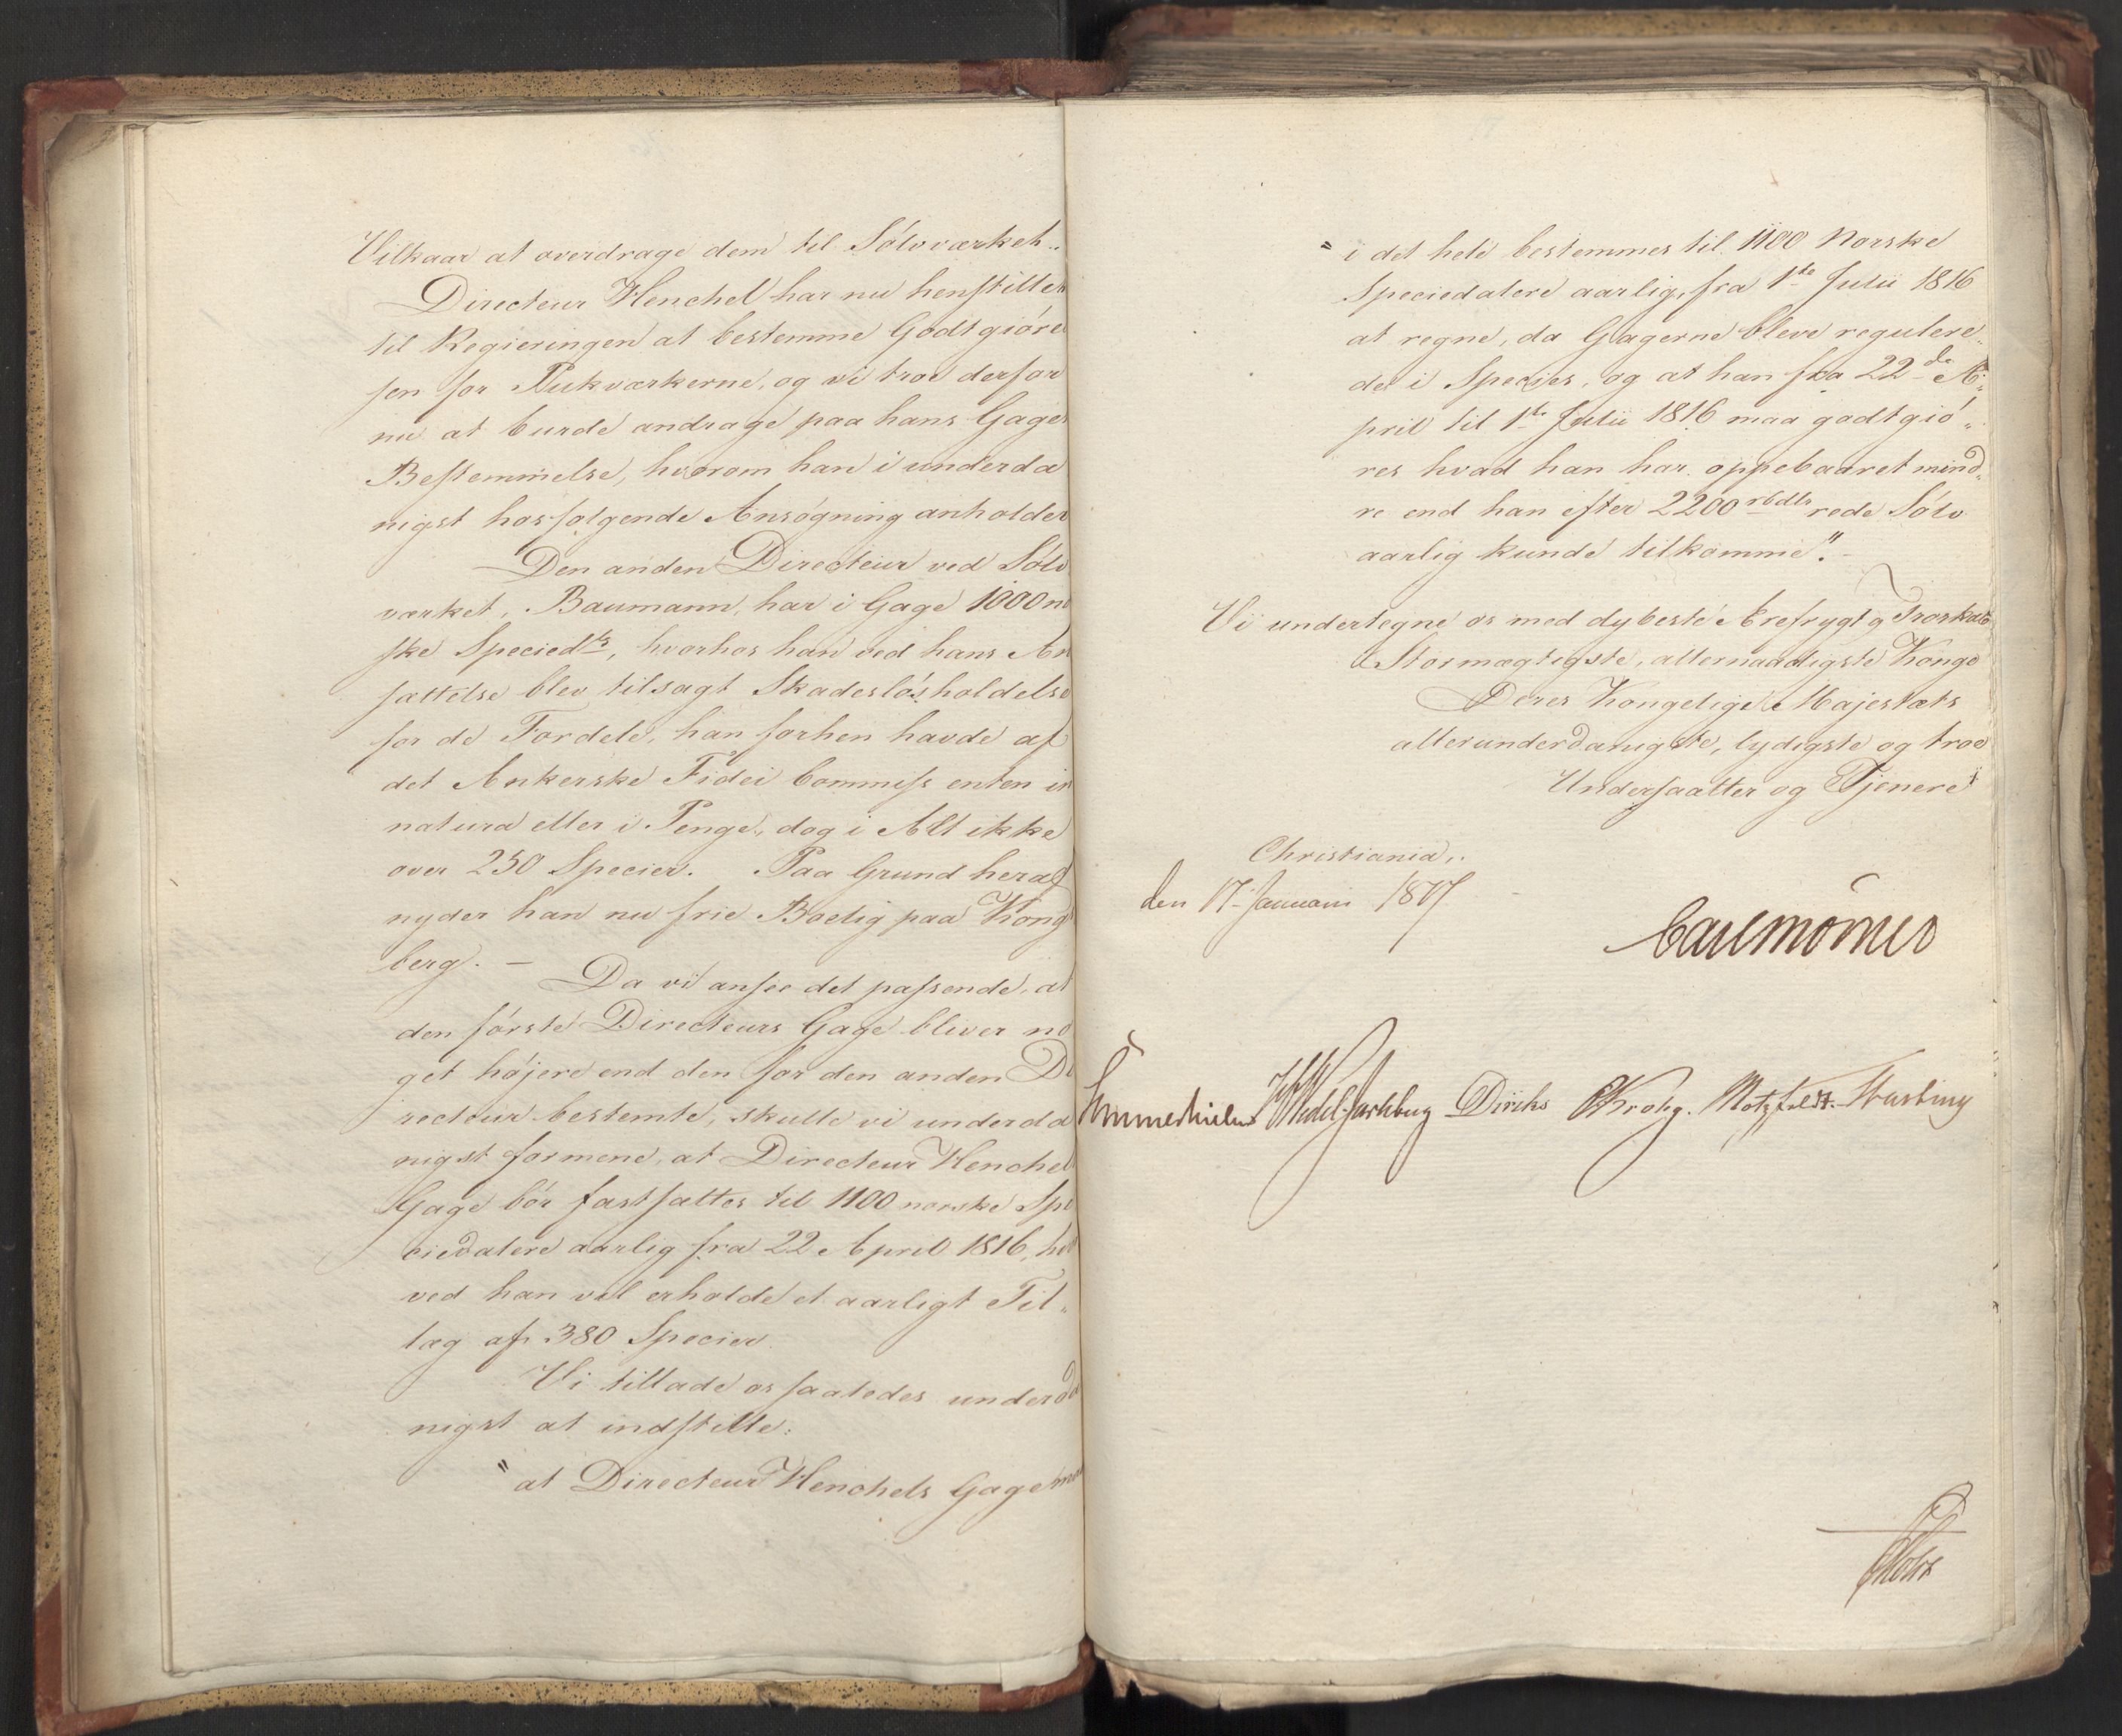 Vilkaar at overdrage dem til Sølvværket.
Directeur Henchel har nu henstillet
til Regieringen at bestemme Godtgiøre
sen for Pukværkerne, og vi troe derfor
nu at burde andrage paa hans Gages
Bestemmelse, hvorom han i underda
nigst hosfølgende Ansøgning anholder
Den anden Directeur ved Sølv
værket, Baumann, har i Gage 1000 no
ske Speciedlr, hvorhos han ved hans An
sættelse blev tilsagt Skadesløsholdelse
for de Fordele, han forhen havde af
det Ankerske Fidei Commiss enten in
natura eller i Penge, dog i Alt ikke
over 250 Species. Paa Grund heraf
nyder han nu frie Boelig paa Kongs
berg. —
Da vi ansee det passende, at
den første Directeurs Gage bliver no
get højere end den for den anden Di
recteur bestemte, skulle vi underda
nigst formene, at Directeur Henchel
Gage bør fastsættes til 1100 norske Spe
ciedalere aarlig fra 22 April 1816, hvor
ved han vil erholde et aarligt Til„
læg af 380 Species
Vi tillade os saaledes underda
nigst at indstille:
"at Directeur Henchels Gage
" i det hele bestemmes til 1100 Norske
Speciedalere aarlig, fra 1ste Julii 1816
at regne, da Gagerne bleve regulere„
de i Species, og at han fra 22de A„
pril til 1ste Julii 1816 maa godtgiø„
res hvad han har oppebaaret mind„
re end han efter 2200 rbdlr rede Sølv
aarlig kunde tilkomme". —
Vi undertegne os med dybeste Ærefrygt og Troskab
Stormægtigste, allernaadigste Konge
Deres Kongelige Majestæts
allerunderdanigste, lydigste og troe
Undersaatter og Tjenere
Christiania,
den 17 Januarii 1817
Carl Mörner
Sommerhielm Wedel Jarlsberg Diriks CKrohg. Motzfeldt. Fasting
Holst